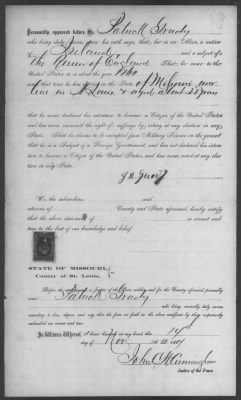 Personally appeared before Me, Patrick Grady
who being duly sworn, upon his oath says, that he is an Alien, a native
of Ireland and a subject of
the Queen of England. That he came to the
United States, in or about the year 1860
that time he has in the State of Missouri now
live in St Louis & aged about 28 years
that he never declared his intention to become a Citizen of the United States
and has never exercised the right of suffrage by voting at any election in any
State. That he claims to be exempt from Military Service on the ground
that he is a Subject of a Foreign Government, and has not declared his intention
to become a Citizen of the United States, and has never voted at any election
in any State.
We, the subscribers, and
citizens of County and State aforesaid, hereby certify
that the above statement is correct and
true to the best of our knowledge and belief
STATE OF MISSOURI,
County of St. Louis,
Before the undersigned a Justice of the within and for the County aforesaid, personally
came Patrick Grady
who being severally duly sworn
according to law, depose and say that the facts set forth in the above affidavits by them respectively
subscribed are correct and true.
In Witness Whereof, I have hereunto set my hand, this 14th
day of Nov A.D. 1864
John C McCunningham
Justice of the Peace